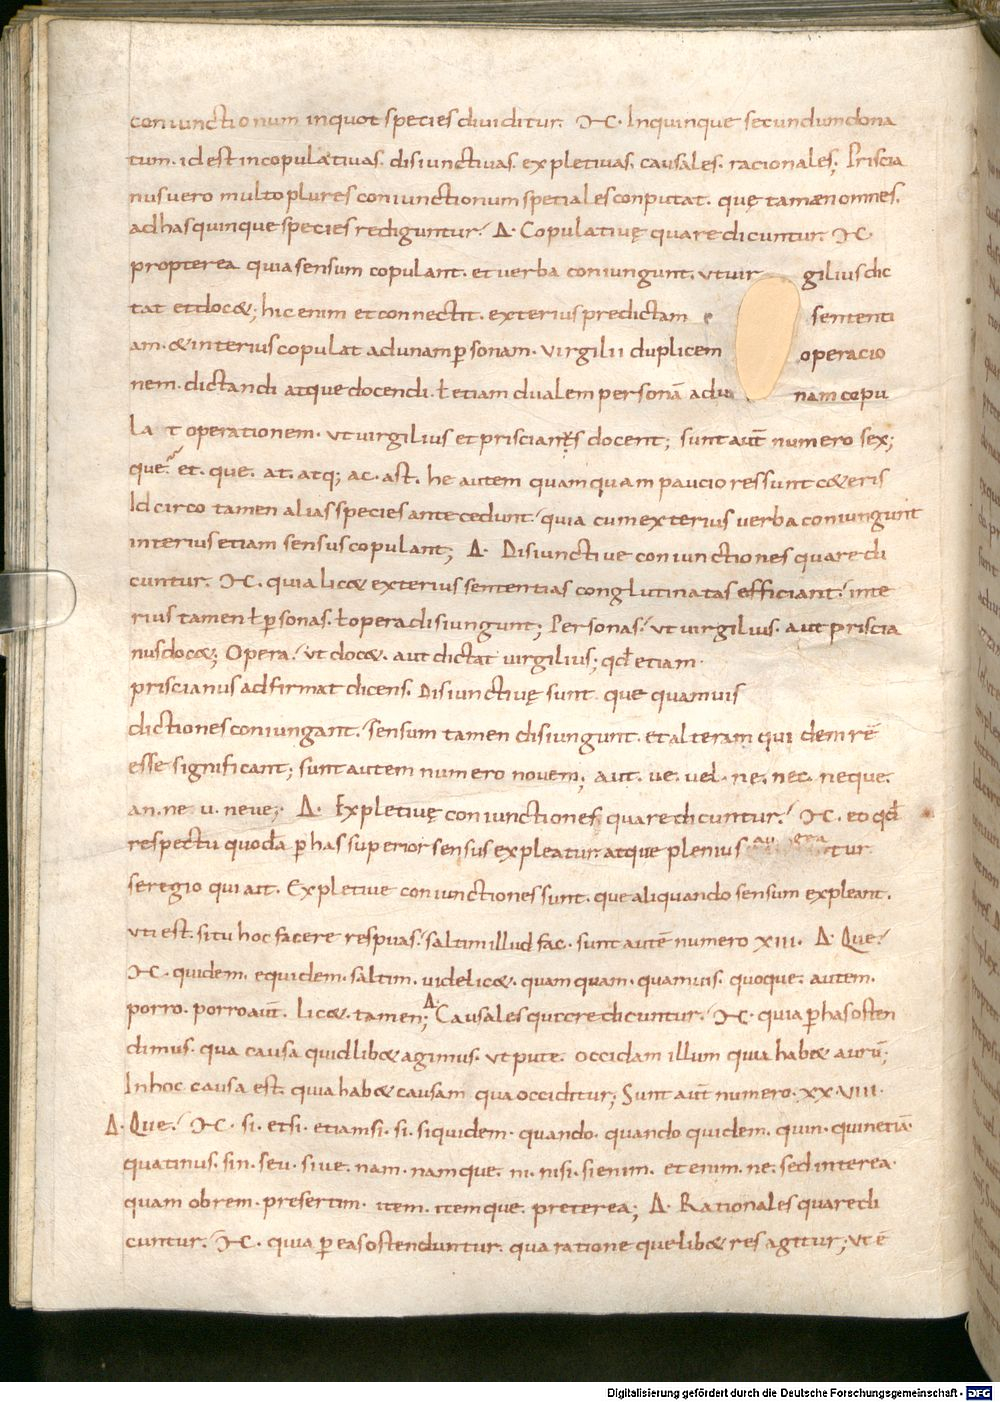 coniunctionum inquot species diuiditur. M. Inquinque secundum dona
tum. id est incopulatiuas. disiunctiuas. expletiuas. causales. racionales; Priscia
nus uero multo plures coniunctionum speciales conputat. quę tamæn omnes.
ad has quinque species rediguntur. Δ. Copulatiuę quare dicuntur. M
propterea quia sensum copulant. et uerba coniungunt. ut uir giliusdic
tat et doc&; hic enim et connectit. exterius predictam sententi
am. & interius copulat ad unam p̄sonam. uirgilii duplicem operacio
nem. dictandi atque docendi. ł etiam dualem personā adu nam copu
la t operationem. ut uirgilius et priscianus docent; sunt aut̄ numero sex;
que. et. que. at. atq; ac. ast. he autem quamquam pauciores sunt c&eris
Idcirco tamen alias species antecedunt. quia cum exterius uerba coniungunt
interius etiam sensus copulant; Δ. Disiunctiue coniunctiones quare di
cuntur. M. quia lic& exterius sententias conglutinatas efficiant. inte
rius tamen ł p̄sonas. ł opera disiungunt; Personas. ut uirgilius. aut priscia
nus doc&; Opera. ut doc&. aut dictat uirgilius; qđ etiam.
priscianus adfirmat dicens. Disiunctiuę sunt que quamuis
dictiones coniungant. sensum tamen disiungunt. et alteram quidem rē
esse significant; sunt autem numero nouem; aut. ue. uel. ne. nec. neque.
an. ne u. neue; Δ. Expletiuę coniunctiones quare dicuntur. M. eo qđ
respectu quodā p̄ has superior sensus expleatur. atque plenius au gea tur
seregio qui ait. Expletiue coniunctiones sunt. que aliquando sensum expleant.
uti est. si tu hoc facere respuas. saltim illud fac. sunt autē numero XIII. Δ. Que.
M. quidem. equidem. saltim. uidelic&. quamquam. quamuis. quoque. autem.
porro. porroaut̄. lic&. tamen; Δ. Causales quare dicuntur. M. quia p̄ has osten
dimus. qua causa quidlib& agimus. ut pute. occidam illum quia hab& aurū;
In hoc causa est. quia hab& causam qua occiditur; Sunt aut̄ numero. XXVIIII.
Δ. Que. M. si. etsi. etiamsi. si. siquidem. quando. quando quidem. quin. quinetiā.
quatinus. sin. seu. siue. nam. namque. ni. nisi. sienim. etenim. ne. sed interea.
quam obrem. presertim. item. itemque. preterea; Δ. Rationales quare di
cuntur. M. quia p̄ eas ostenduntur. qua ratione quelib& res agitur; ut ē
Digitalisierung gefördert durch die Deutsche Forschungsgemeinschaft - DFG